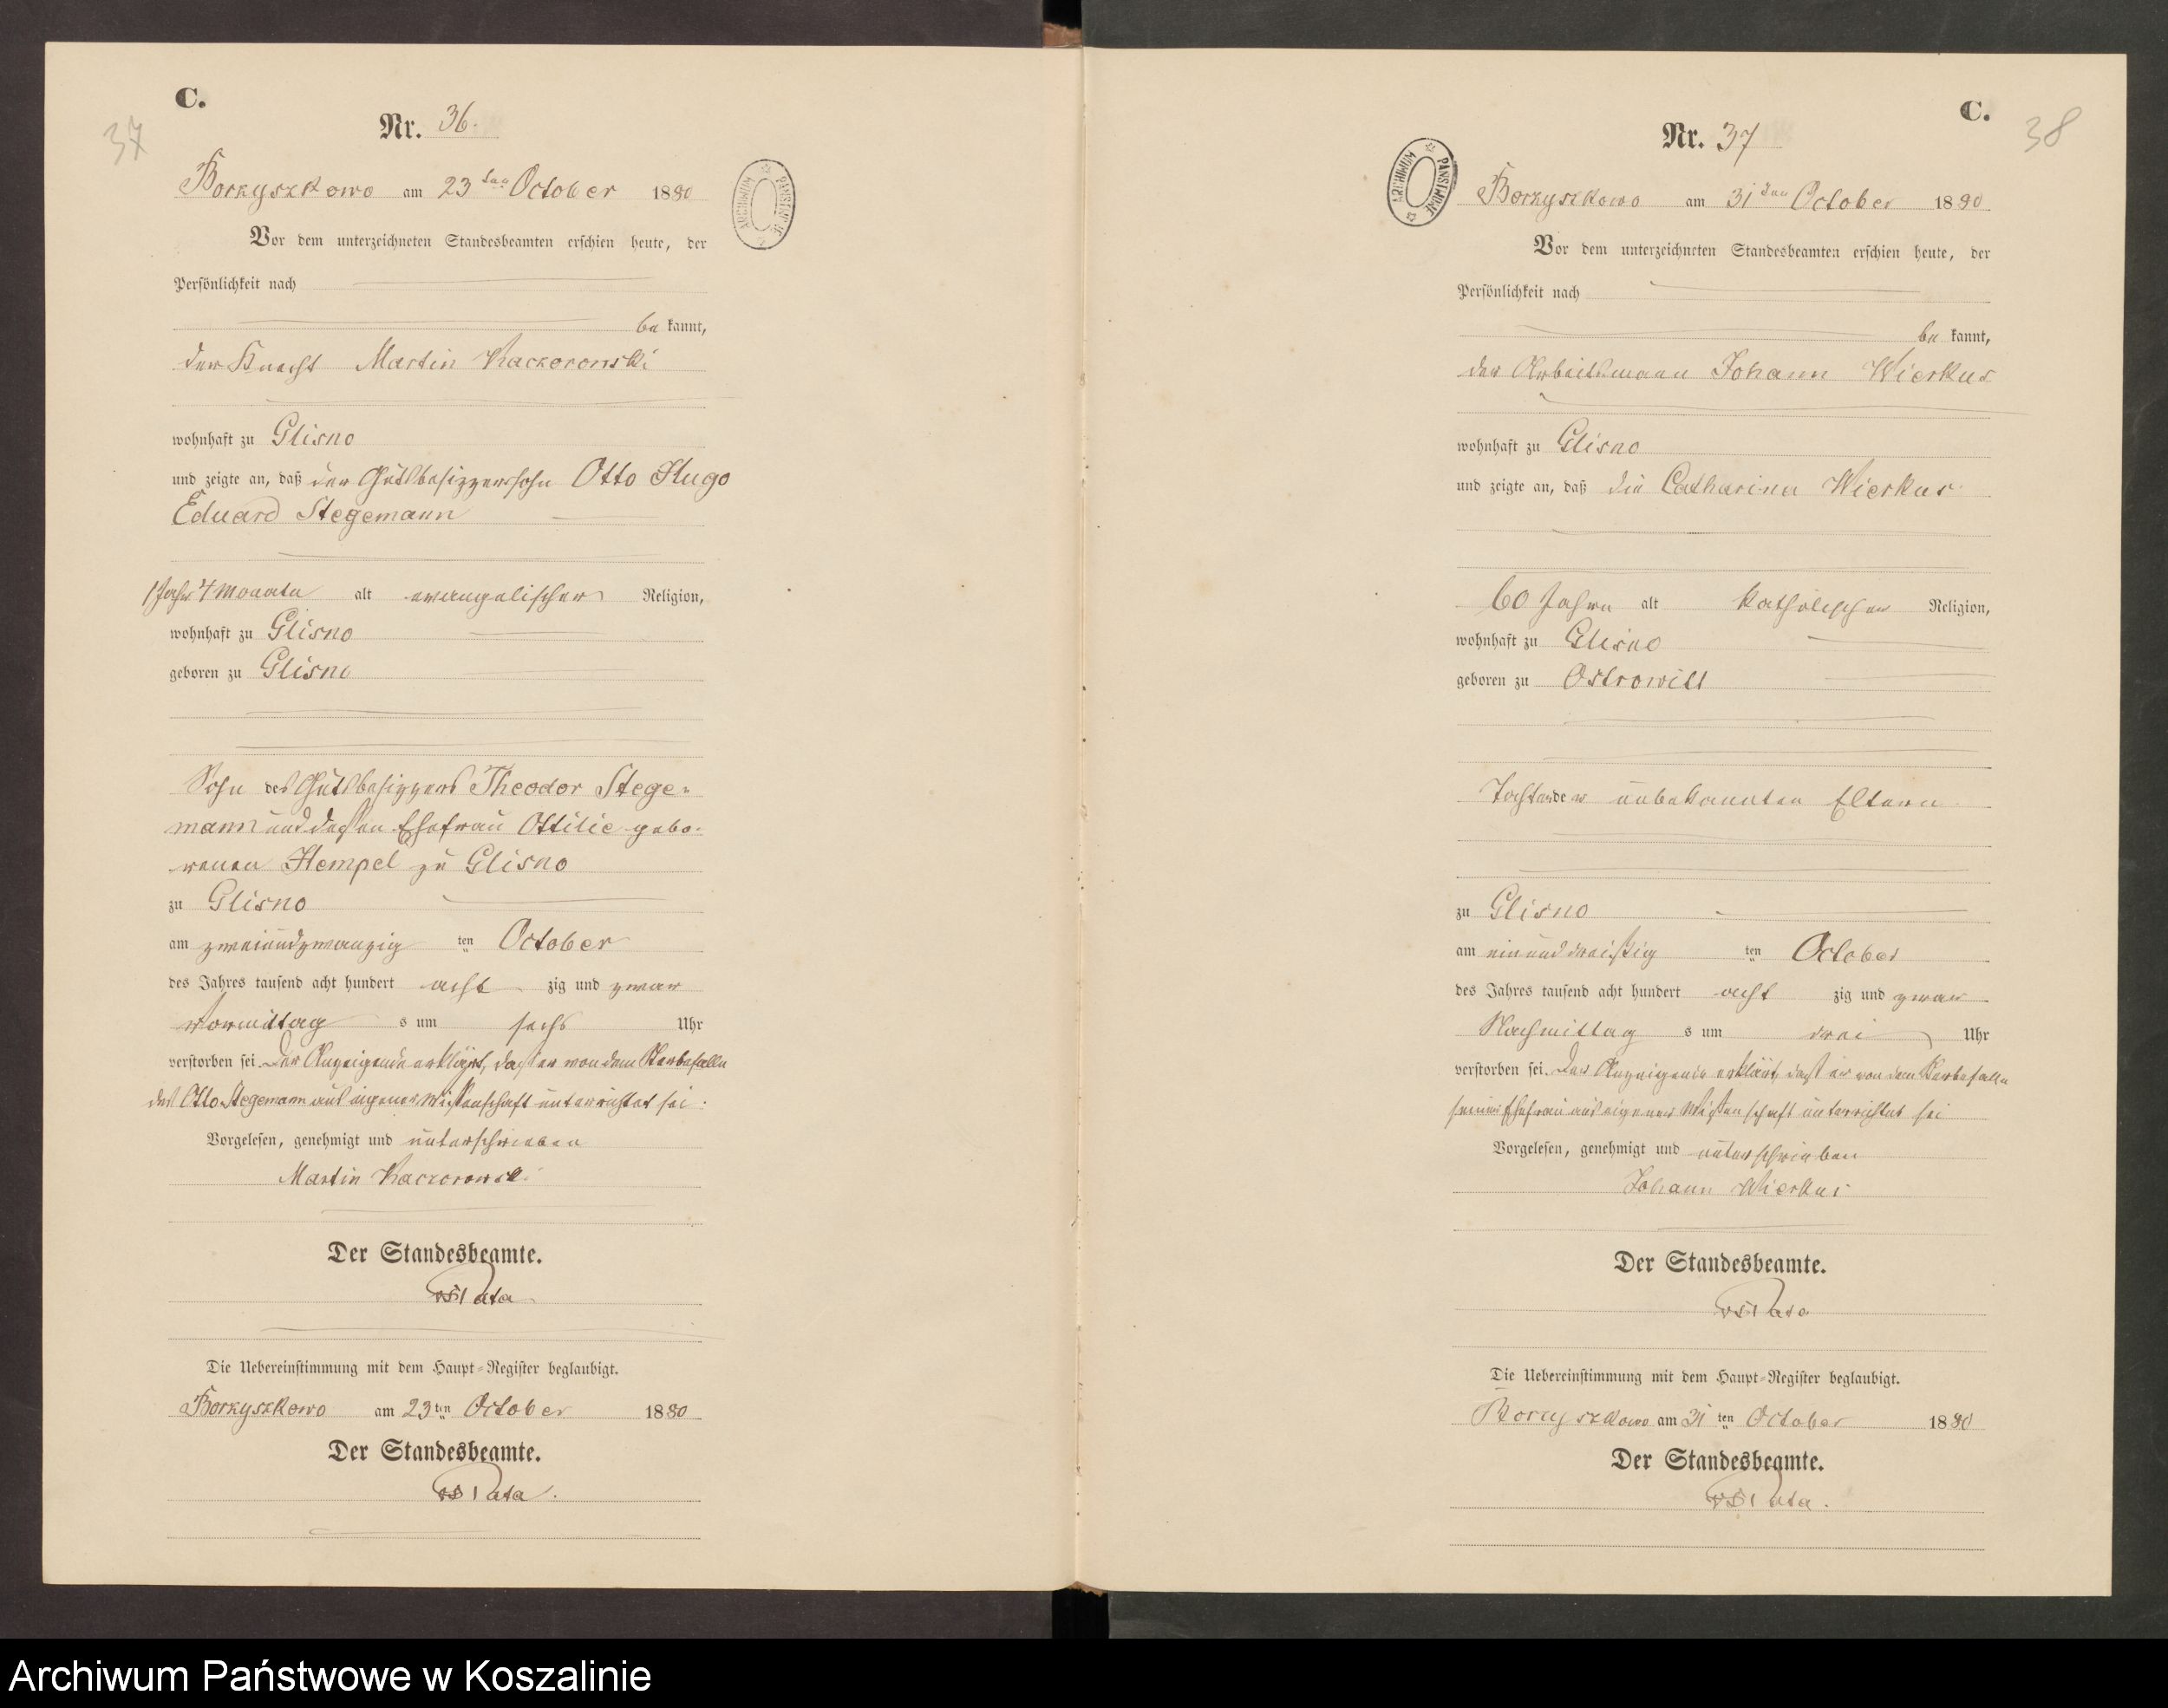 C.
37
Nr. 36.
Borzyszkowo am 23ten October 1880
ARCHIWUM PAŃSTWOWE
Vor dem unterzeichneten Standesbeamten erschien heute, der
Persönlichkeit nach
be kannt,
der Knecht Martin Kaczorowski
wohnhaft zu Glisno
und zeigte an, daß der Gutsbesizzerssohn Otto Hugo
Eduard Stegemann
1 Jahr 4 Monate alt evangelischer Religion,
wohnhaft zu Glisno
geboren zu Glisno
Sohn des Gutsbesizzers Theodor Stege-
mann und dessen Ehefrau Ottilie gebo-
renen Hempel zu Glisno
zu Glisno
am zweiundzwanzig ten October
des Jahres tausend acht hundert acht zig und zwar
Vormittag s um sechs Uhr
verstorben sei. Der Anzeigende erklärt, dass er von dem Sterbefalle
des Otto Stegemann aus eigener Wissenschaft unterrichtet sei.
Vorgelesen, genehmigt und unterschrieben
Martin Kaczorowski
Der Standesbeamte.
Die Uebereinstimmung mit dem Haupt-Register beglaubigt.
Borzyszkowo am 23ten October 1880
Der Standesbeamte.
C.
38
Nr. 37
Borzyszkowo am 31ten October 1880
ARCHIWUM PAŃSTWOWE
Vor dem unterzeichneten Standesbeamten erschien heute, der
Persönlichkeit nach
be kannt,
der Arbeitsmann Johann Wierkus
wohnhaft zu Glisno
und zeigte an, daß die Catharina Wierkus
60 Jahre alt katholischer Religion,
wohnhaft zu Glisno
geboren zu Ostrowitt
Tochter der unbekannten Eltern
zu Glisno
am einunddreißig ten October
des Jahres tausend acht hundert acht zig und zwar
Nachmittag s um drei Uhr
verstorben sei. Der Anzeigende erklärt, dass er von dem Sterbefalle
seiner Ehefrau aus eigener Wissenschaft unterrichtet sei
Vorgelesen, genehmigt und unterschrieben
Johann Wierkus
Der Standesbeamte.
Die Uebereinstimmung mit dem Haupt-Register beglaubigt.
Borzyszkowo am 31 ten October 1880
Der Standesbeamte.
Archiwum Państwowe w Koszalinie